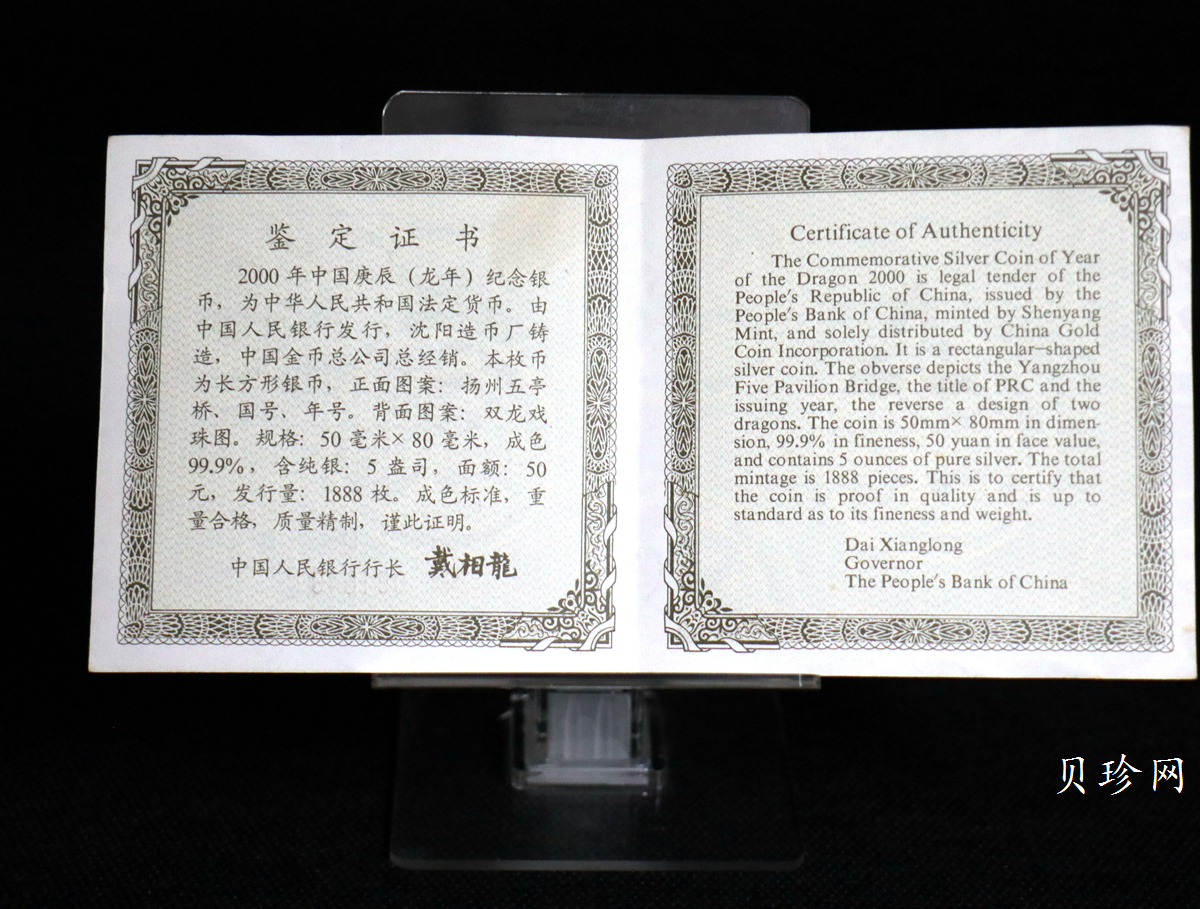 鉴定证书
2000年中国庚辰（龙年）纪念银
币，为中华人民共和国法定货币。由
中国人民银行发行，沈阳造币厂铸
造，中国金币总公司总经销。本枚币
为长方形银币，正面图案：扬州五亭
桥、国号、年号。背面图案：双龙戏
珠图。规格：50毫米×80毫米，成色
99.9%，含纯银：5盎司，面额：50
元，发行量：1888枚。成色标准，重
量合格，质量精制，谨此证明。
中国人民银行行长 戴相龍
Certificate of Authenticity
The Commemorative Silver Coin of Year
of the Dragon 2000 is legal tender of the
People's Republic of China, issued by the
People's Bank of China, minted by Shenyang
Mint, and solely distributed by China Gold
Coin Incorporation. It is a rectangular-shaped
silver coin. The obverse depicts the Yangzhou
Five Pavilion Bridge, the title of PRC and the
issuing year, the reverse a design of two
dragons. The coin is 50mm× 80mm in dimen-
sion, 99.9% in fineness, 50 yuan in face value,
and contains 5 ounces of pure silver. The total
mintage is 1888 pieces. This is to certify that
the coin is proof in quality and is up to
standard as to its fineness and weight.
Dai Xianglong
Governor
The People's Bank of China
贝珍网